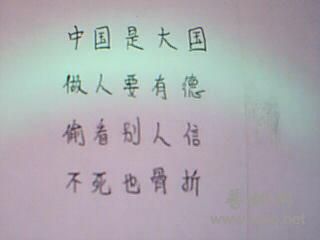 中国是大国
做人要有德
偷看别人信
不死也骨折